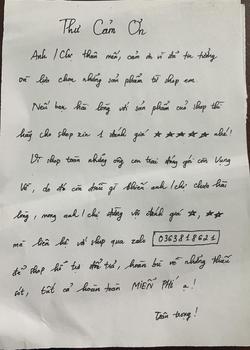 Thư Cảm Ơn
Anh / Chị thân mến, cảm ơn vì đã tin tưởng
và lựa chọn những sản phẩm từ shop em.
Nếu bạn hài lòng với sản phẩm của shop thì
hãy cho shop xin 1 đánh giá ★★★★★ nhé!
Vì shop toàn những ông con trai đóng gói còn Vụng
Về, do đó còn điều gì khiến anh / chị chưa hài
lòng, mong anh / chị đừng vội đánh giá ★, ★★
mà liên hệ với shop qua zalo 0363818621
để shop hỗ trợ đổi trả, hoàn lại vì những thiếu
sót, tất cả hoàn toàn MIỄN PHÍ ạ!
Trân trọng!